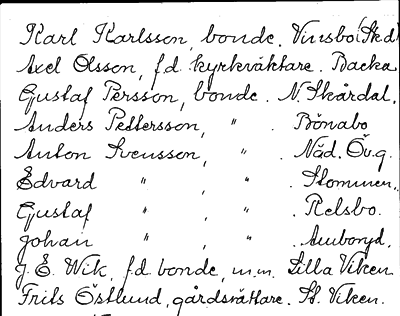 Karl Karlsson, bonde. Vinsbo (Skd)
Axel Olsson, f.d. kyrkväktare. Backa
Gustaf Persson, bonde. N. Skårdal.
Anders Pettersson, " . Bönabo
Anton Svensson, " . Näd. Öv.g.
Edvard " , " . Stommen.
Gustaf " , " . Relsbo.
Johan " , " . Amboryd.
J. E. Wik, f.d. bonde, m.m. Lilla Viken
Frits Östlund, gårdsrättare. St. Viken.